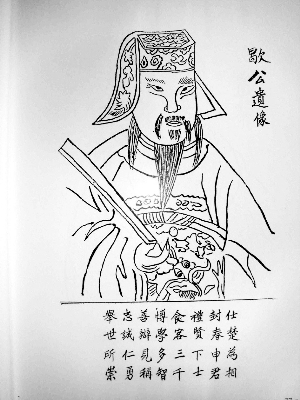 歇公遺像
仕楚為相
封春申君
禮賢下士
食客三千
博學多智
善辯見稱
忠誠仁勇
舉世所崇